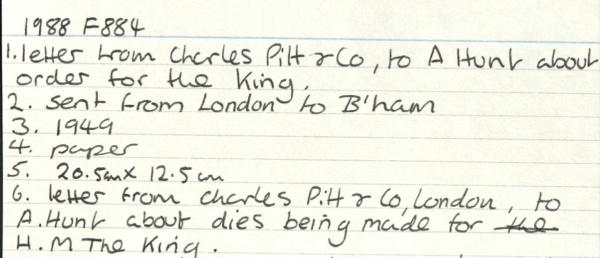 1988 F884
1. letter from Charles Pitt & Co, to A Hunt about
order for the King.
2. sent from London to B'ham
3. 1949
4. paper
5. 20.5cm x 12.5cm
6. letter from charles Pitt & Co, London, to
A. Hunt about dies being made for the
H.M The King.